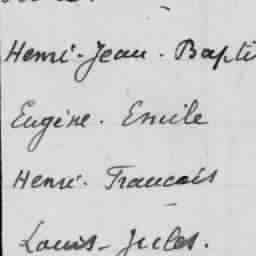 Henri-Jean. Bapti
Eugène. Emile
Henri. Francois
Louis-Jules.